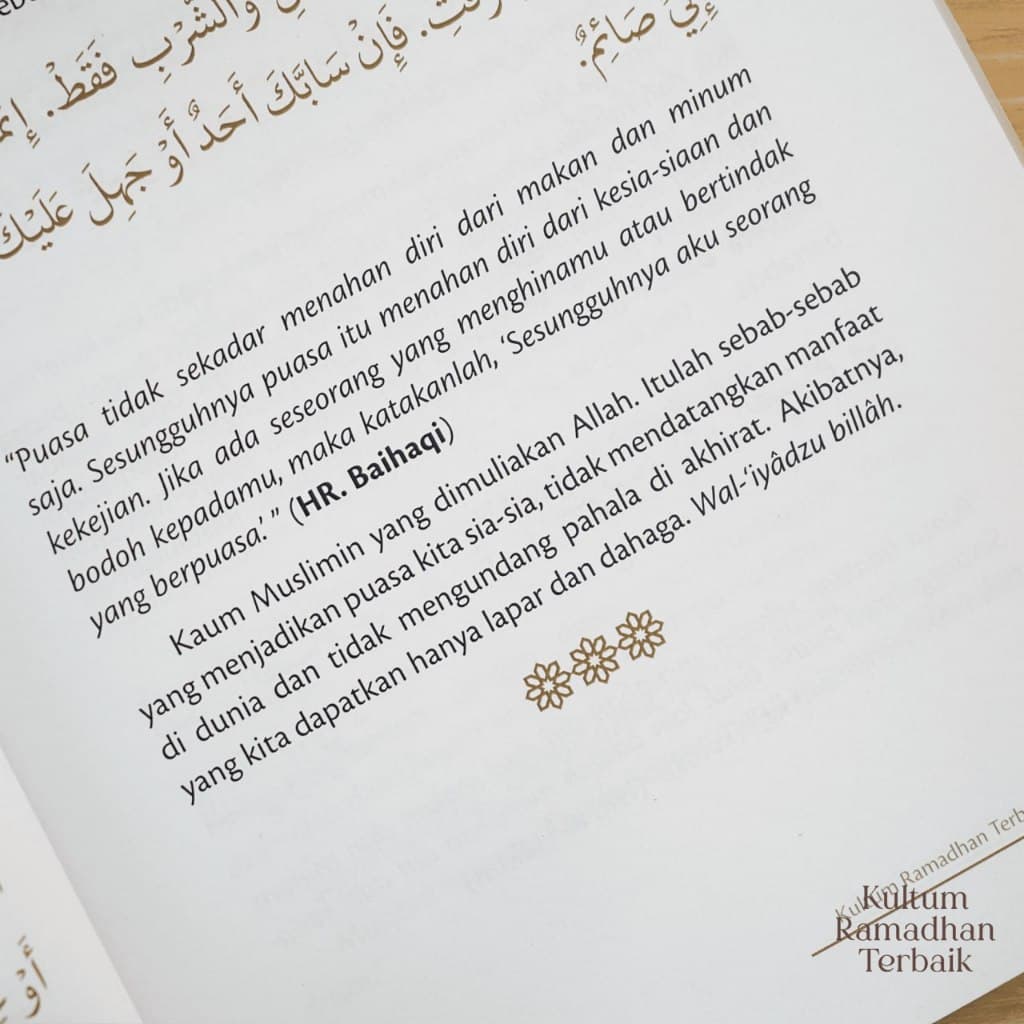 وَالشُّرْبِ فَقَطْ. إِنَّمَا
فَإِنْ سَابَّكَ أَحَدٌ أَوْ جَهِلَ عَلَيْكَ
إِنِّي صَائِمٌ.
“Puasa tidak sekadar menahan diri dari makan dan minum
saja. Sesungguhnya puasa itu menahan diri dari kesia-siaan dan
kekejian. Jika ada seseorang yang menghinamu atau bertindak
bodoh kepadamu, maka katakanlah, ‘Sesungguhnya aku seorang
yang berpuasa’.” (HR. Baihaqi)
Kaum Muslimin yang dimuliakan Allah. Itulah sebab-sebab
yang menjadikan puasa kita sia-sia, tidak mendatangkan manfaat
di dunia dan tidak mengundang pahala di akhirat. Akibatnya,
yang kita dapatkan hanya lapar dan dahaga. Wal-‘iyâdzu billâh.
Kultum Ramadhan Terb
Kultum
Ramadhan
Terbaik
أَوْ